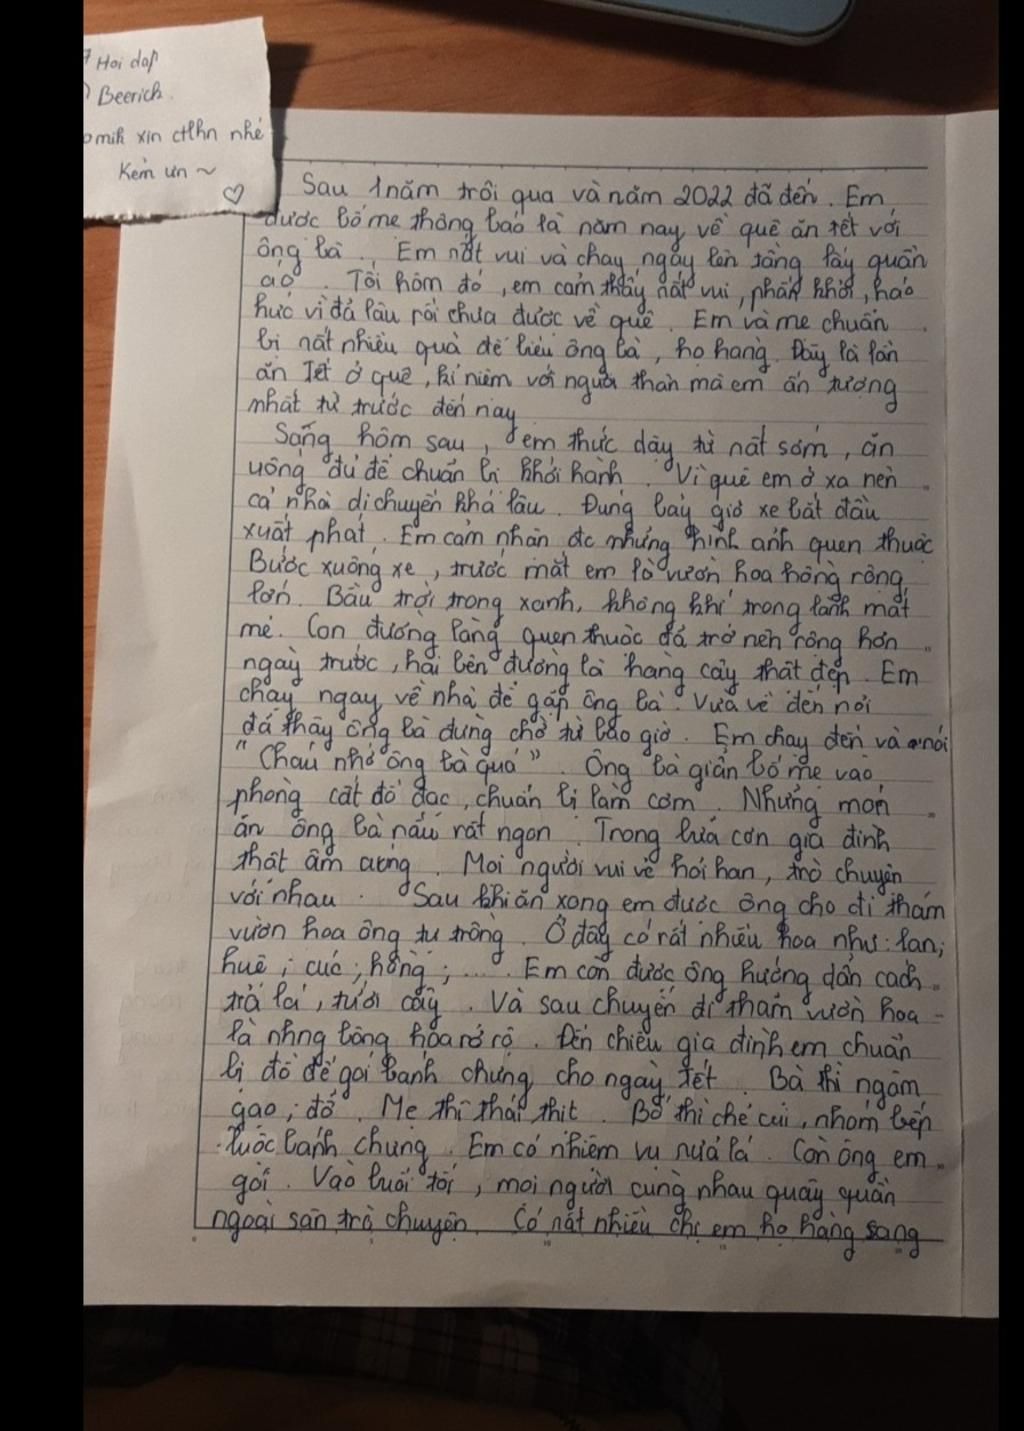 7 Hoi dap
Beerich
mik xin ctlhn nhé
Kẻm ưn ~
Sau 1 năm trôi qua và năm 2022 đã đến. Em
được bố mẹ thông báo là năm nay về quê ăn tết với
ông bà. Em nất vui và chạy ngay lên tầng lấy quần
áo. Tối hôm đó, em cảm thấy nất vui, phấn khởi, háo
hức vì đã lâu rồi chưa được về quê. Em và mẹ chuẩn
bị nất nhiều quà để biếu ông bà, họ hàng. Đây là lần
ăn Tết ở quê, kỉ niệm với người thân mà em ấn tượng
nhất từ trước đến nay
Sáng hôm sau, em thức dậy từ nất sớm, ăn
uống đủ để chuẩn bị khởi hành. Vì quê em ở xa nên
cả nhà di chuyển khá lâu. Đúng bảy giờ xe bắt đầu
xuất phát. Em cảm nhận đc những hình ảnh quen thuộc
Bước xuống xe, trước mắt em là vườn hoa hồng rộng
lớn. Bầu trời trong xanh, không khí trong lành mát
mẻ. Con đường làng quen thuộc đã trở nên rộng hơn
ngày trước, hai bên đường là hàng cây thật đẹp. Em
chạy ngay về nhà để gặp ông bà. Vừa về đến nơi
đã thấy ông bà đứng chờ từ bao giờ. Em chạy đến và nói
"Cháu nhớ ông bà quá". Ông bà giần bố mẹ vào
phòng cất đồ đạc, chuẩn bị làm cơm. Những món
ăn ông bà nấu rất ngon. Trong bữa cơn gia đình
thật ấm cúng. Mọi người vui vẻ hỏi han, trò chuyện
với nhau. Sau khi ăn xong em được ông cho đi thăm
vườn hoa ông tự trồng. Ở đây có rất nhiều hoa như: lan;
huệ; cúc; hồng; .... Em còn được ông hướng dẫn cách
trả lá, tưới cây. Và sau chuyến đi thăm vườn hoa -
là nhng bông hoa rở rộ. Đến chiều gia đình em chuẩn
bị đồ để gói bánh chưng cho ngày Tết. Bà thì ngâm
gạo; đỗ. Mẹ thì thái thịt. Bố thì chẻ củi, nhóm bếp
luộc bánh chưng. Em có nhiệm vụ nửa lá. Còn ông em
gói. Vào buổi tối, mọi người cùng nhau quây quần
ngoài sân trò chuyện. Có nất nhiều chị em họ hàng sang